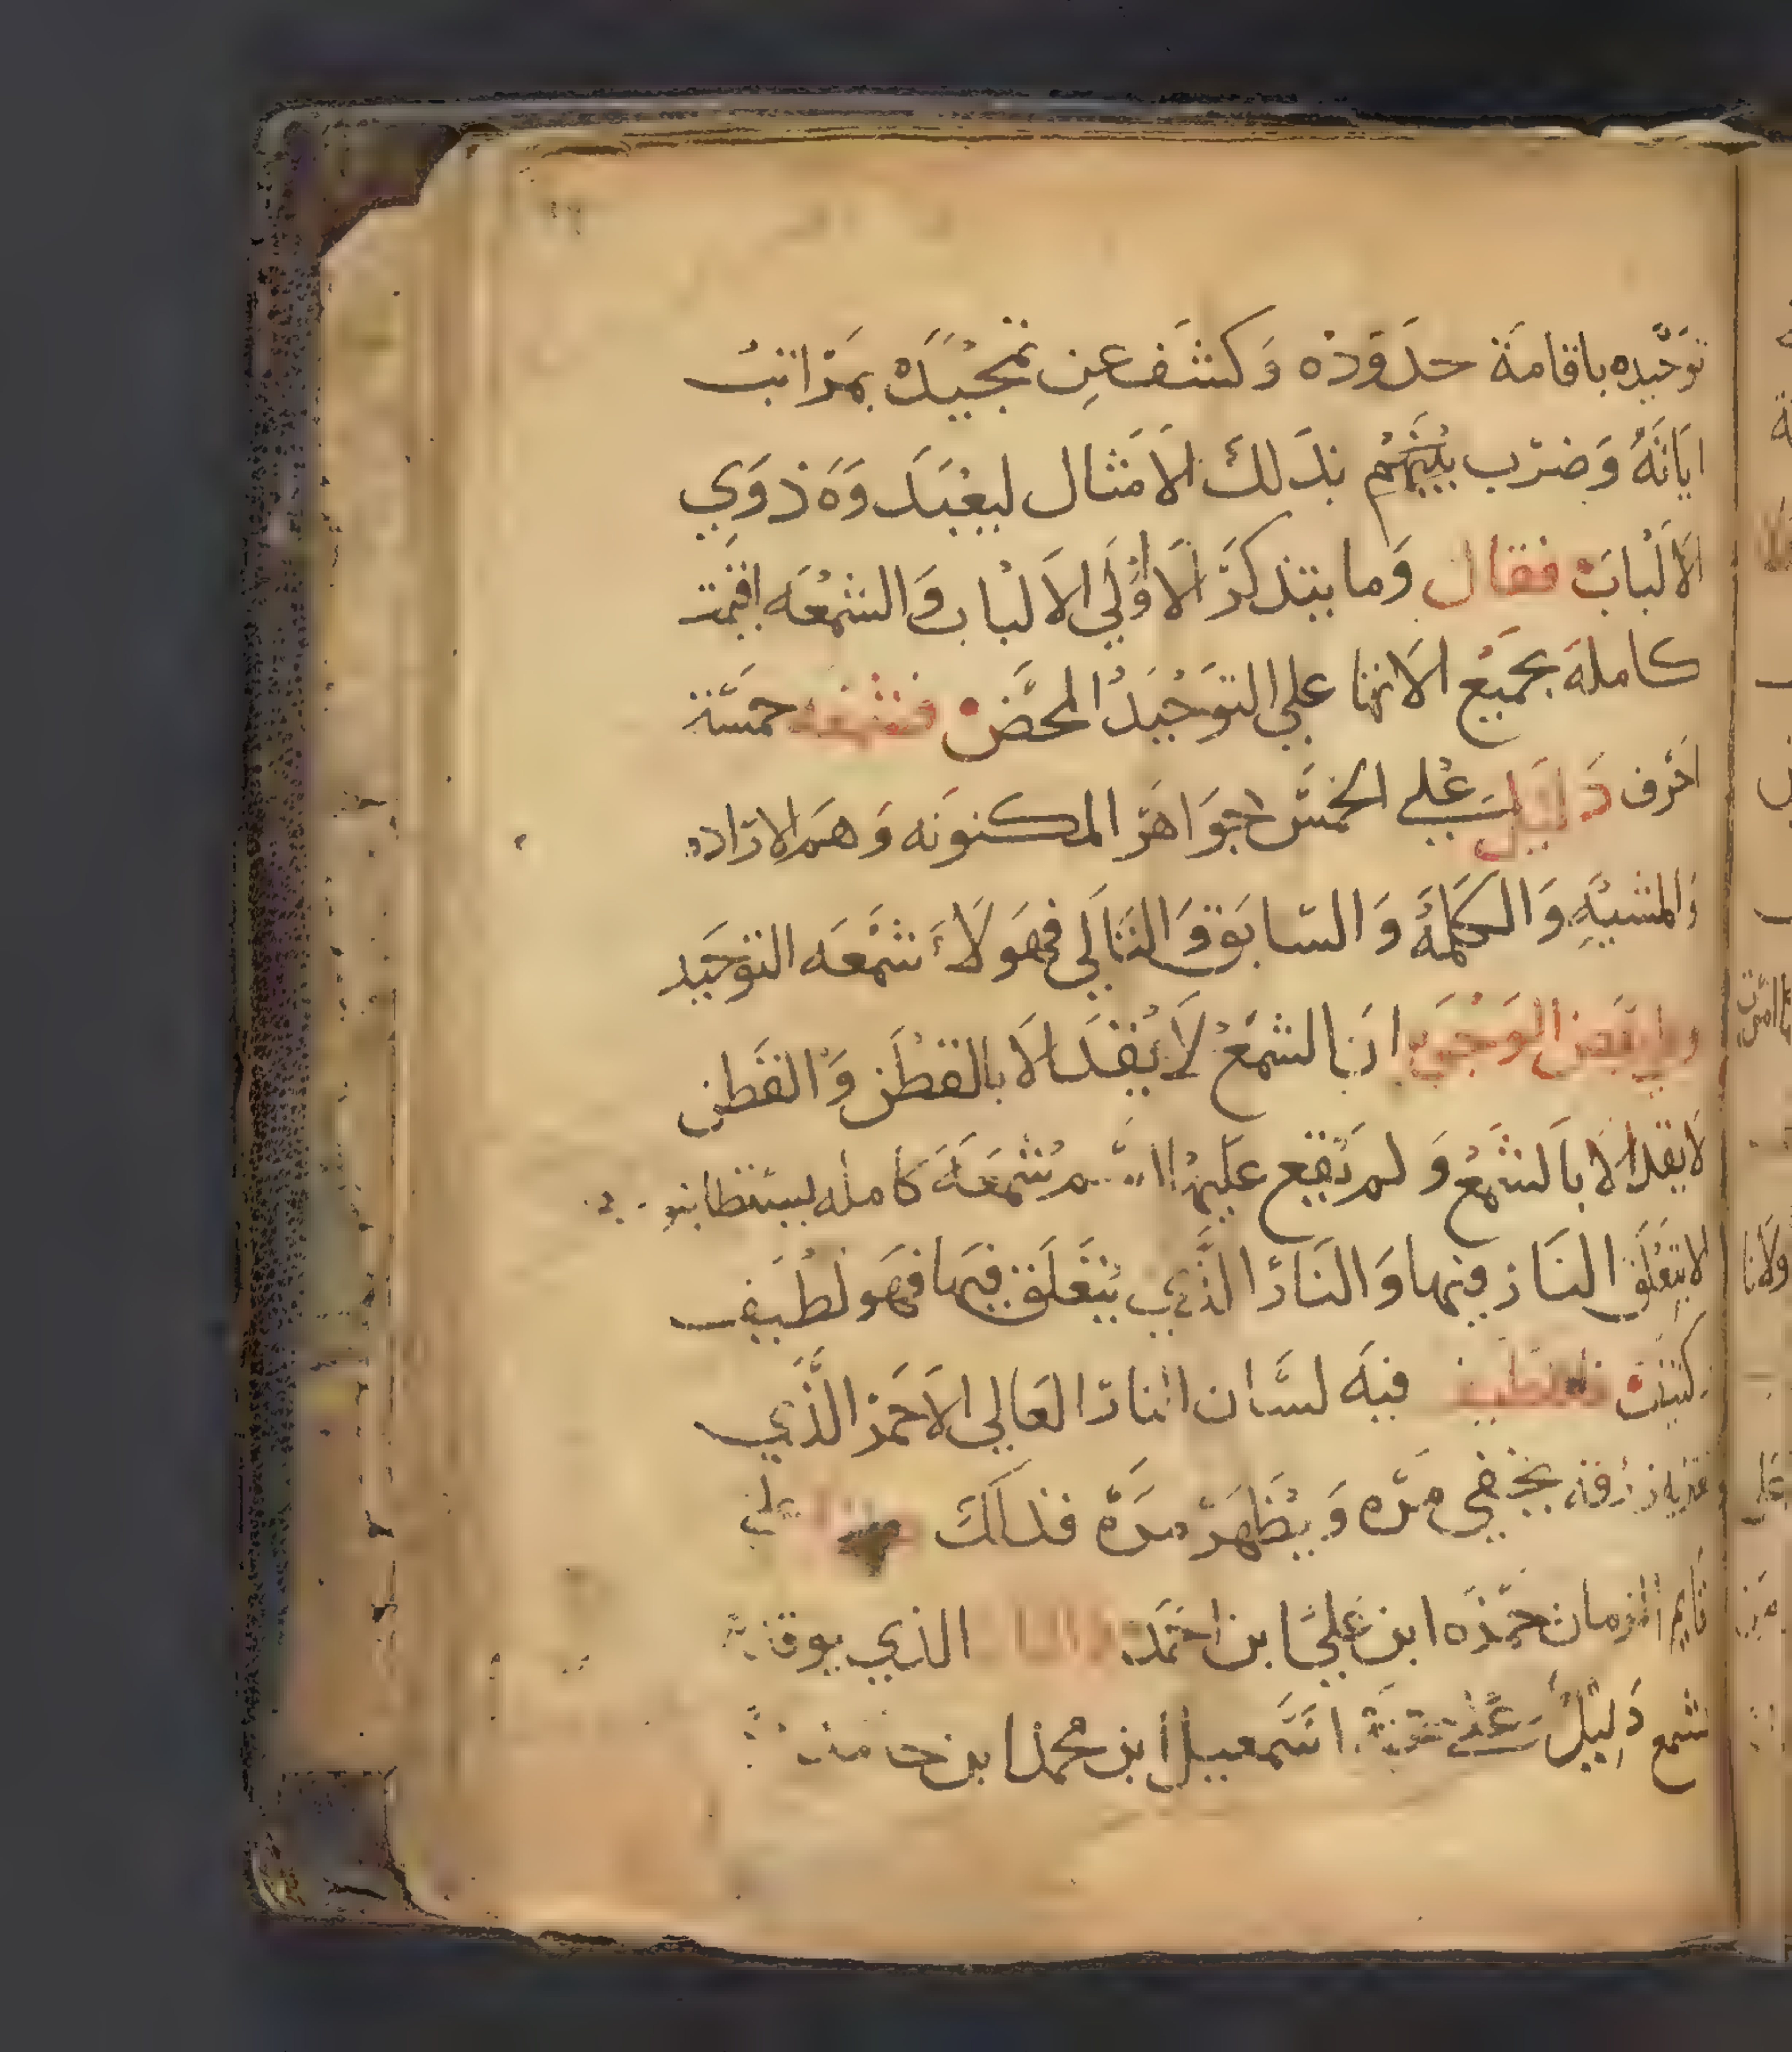 توحيده باقامة حدوده وكشف عن تمجيده بمراتب
اياته وضرب بينهم بذلك الامثال ليعبدوه ذوي
الالباب فقال وما يتذكر الا اولي الالباب والشمعه اقيمت
كامله بجميع الاتها علي التوحيد المحض فشمعه خمسة
احرف دليل علي الخمس جواهر المكنونه وهم الاراده
والمشيه والكلمه والسابق والتالي فهولاء شمعه التوحيد
وفي بعض الوجوه ان الشمع لا يقد الا بالقطن والقطن
لا يقد الا بالشمع ولم يقع عليها اسم شمعة كامله
لا يتعلق النار فيها والنار الذي يتعلق فيها فهو لطيف
وكثيف فلطيف فيه لسان النار العالي الاحمر الذي
زرقة يخفي مره ويظهر مرة فذلك علي
قايم الزمان حمزه ابن علي ابن احمد الذي
شمع دليل علي اسمعيل ابن محمد ابن حامد